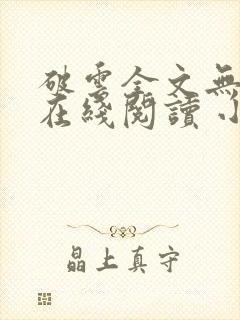 破雲全文無
在綫閱讀小
晶上真守